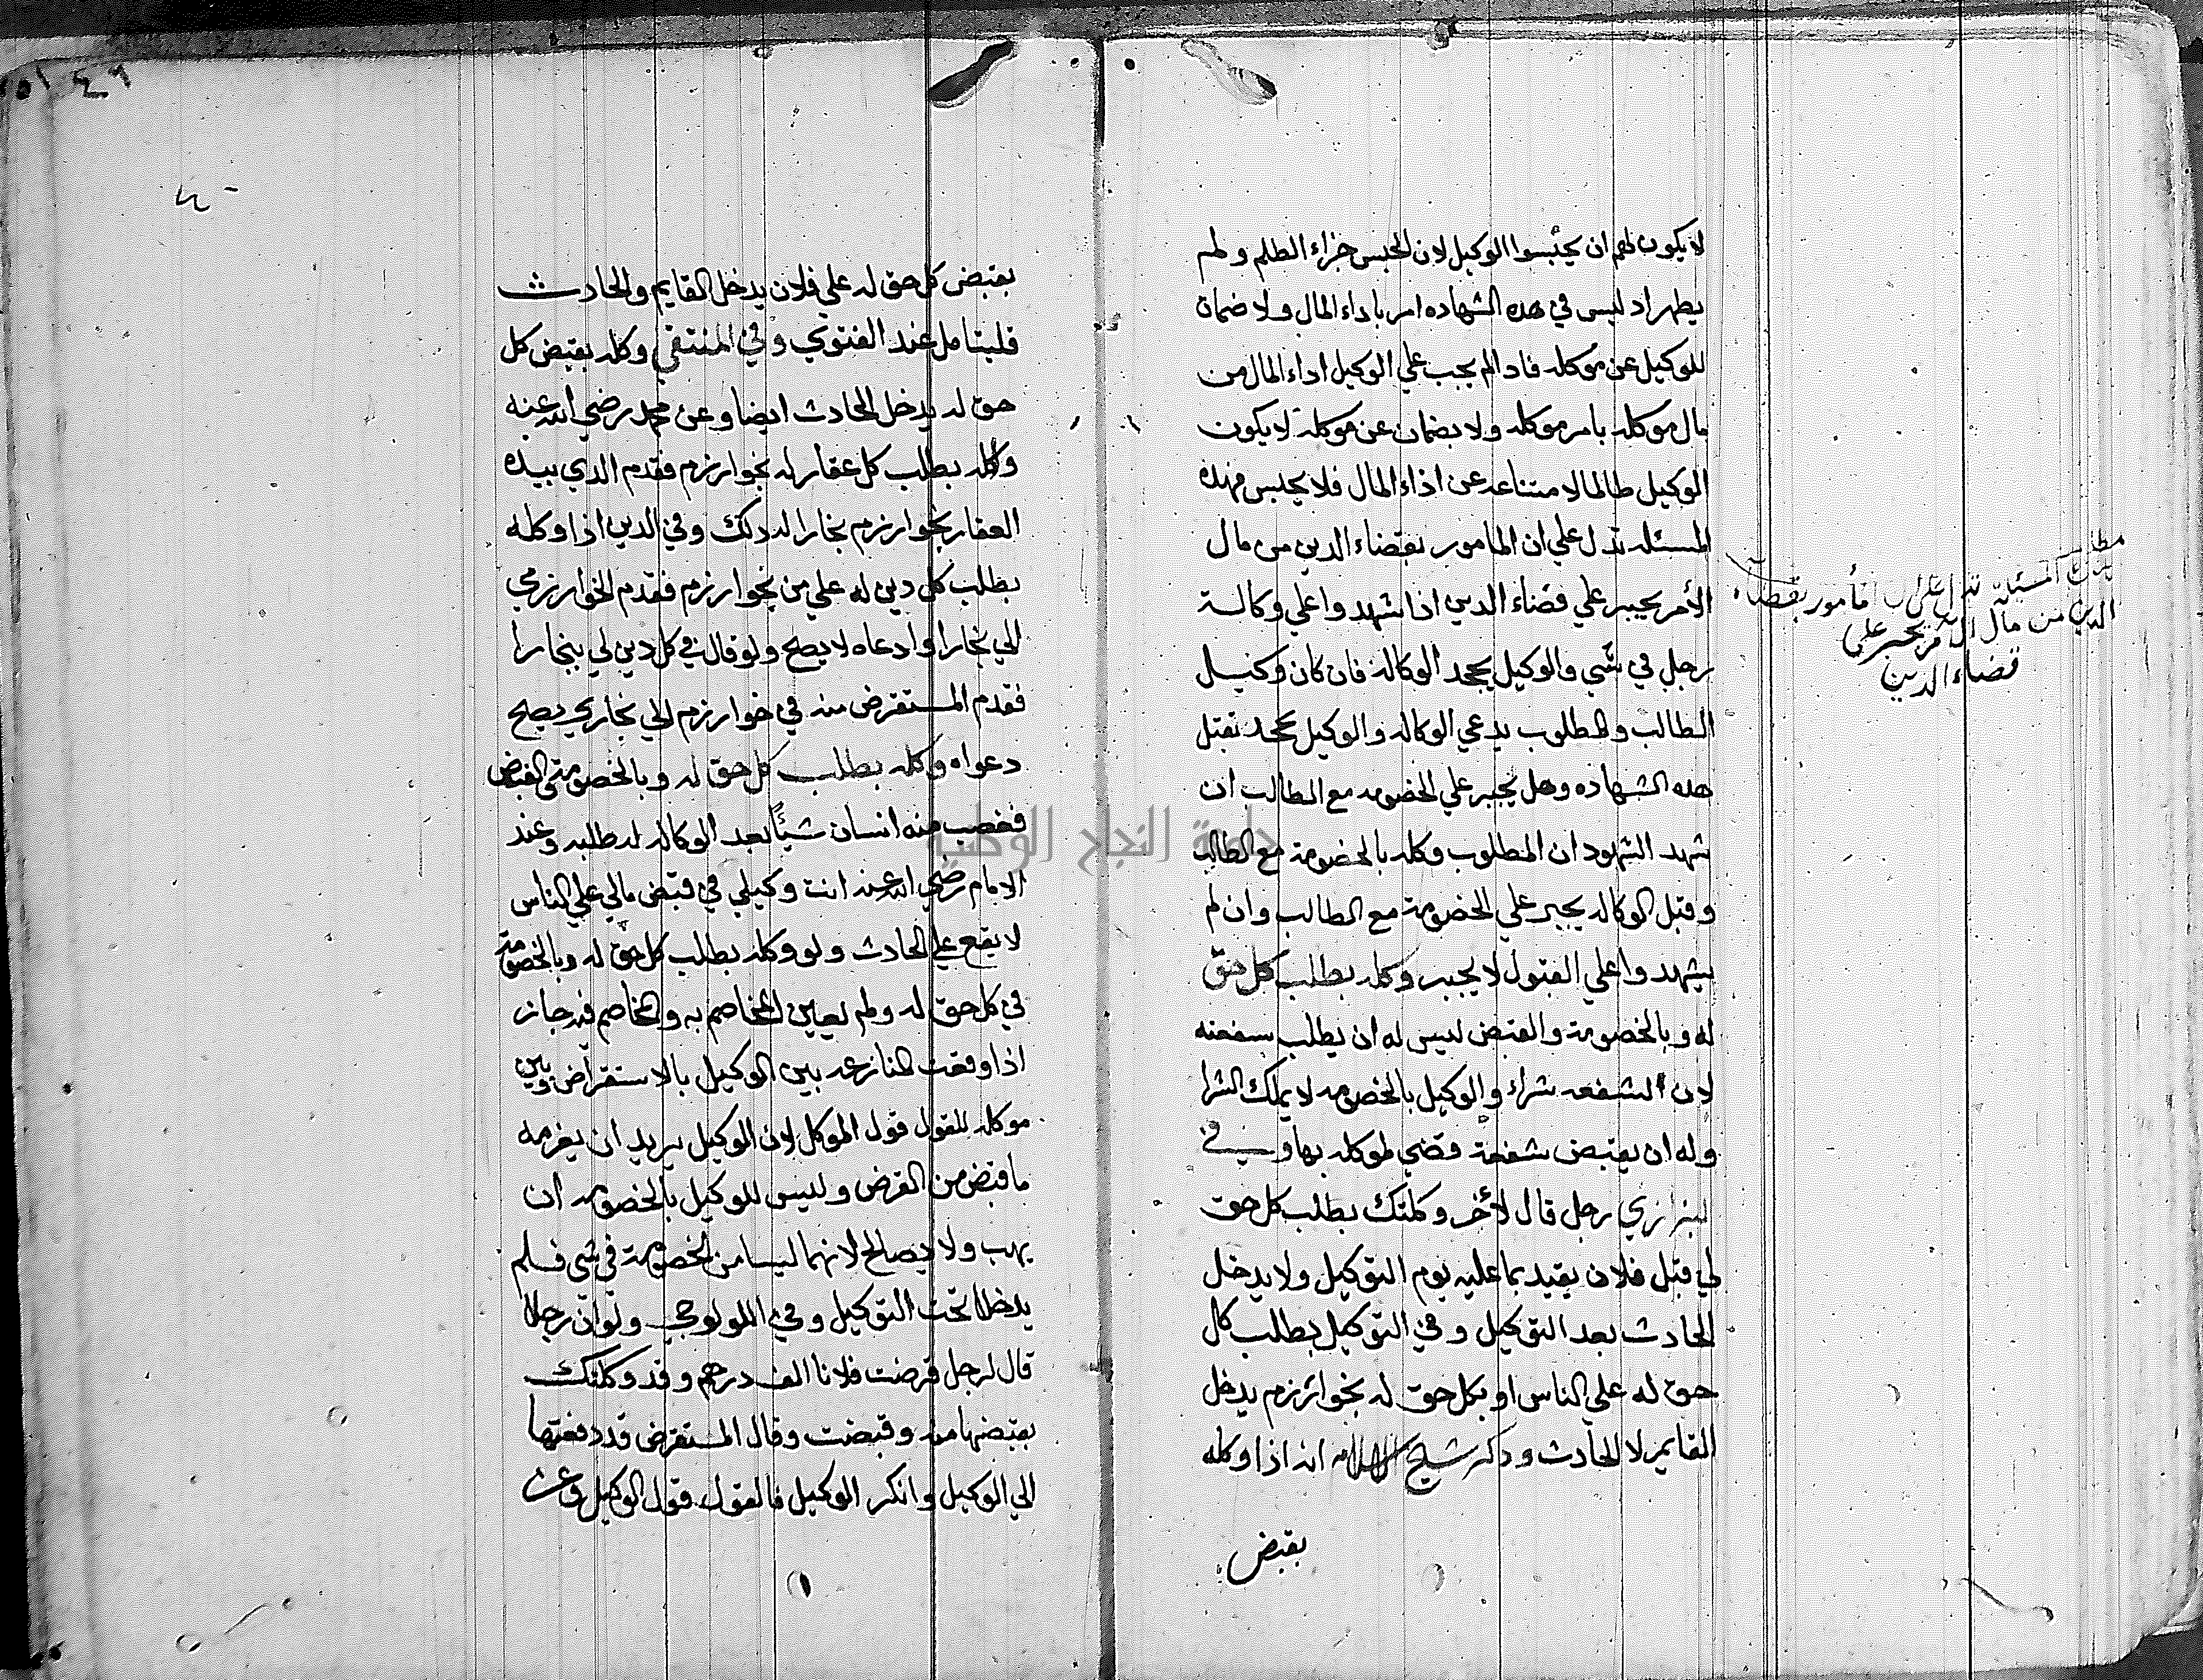 لا يكون لهم ان يحبسوا الوكيل لان الحبس جزاء الظلم ولم
يظهر اد ليس في هده الشهاده امر باداء المال ولا ضمان
للوكيل عن موكله فادا لم يجب علي الوكيل اداء المال من
مال موكله بامر موكله ولا بضمان عن موكله لا يكون
الوكيل طالما لامتناعه عن اداء المال فلا يحبس فهذه
المسئله تدل علي ان المامور بقضاء الدين من مال
الأمر يجبر علي قضاء الدين اذا شهدوا علي وكالة
رجل في شي والوكيل يجحد الوكاله فان كان وكيل
الطالب والمطلوب يدعي الوكاله والوكيل يجحد تقبل
هده الشهاده وهل يجبر علي الخصومه مع الطالب ان
شهد الشهود ان المطلوب وكله بالخصومة مع الطالب
وقبل الوكاله يجبر علي الخصومة مع الطالب وان لم
يشهدوا علي القبول لا يجبر وكله بطلب كل حق
له وبالخصومة والقبض ليس له ان يطلب بشفعته
لان الشفعه شراء والوكيل بالخصومه لا يملك الشرا
وله ان يقبض شفعة قضي لموكله بها وفي
البزازي رجل قال لآخر وكلتك بطلب كل حق
لي قبل فلان يقيد بما عليه يوم التوكيل ولا يدخل
الحادث بعد التوكيل وفي التوكيل بطلب كل
حق له علي الناس او بكل حق له بخوارزم يدخل
القايم لا الحادث ودكر شيخ الاسلام انه اذا وكله
بقبض
مطلب
هذه المسئلة تدل على ان المأمور بقضاء
الدين من مال الآمر يجبر على
قضاء الدين
بقبض كل حق له علي فلان يدخل القايم والحادث
فليتامل عند الفتوي وفي المنتقي وكله بقبض كل
حق له يدخل الحادث ايضا وعن محمد رضي الله عنه
وكله بطلب كل عقار له بخوارزم فقدم الدي بيده
العقار بخوارزم بخارا له دلك وفي الدين اذا وكله
بطلب كل دين له علي من بخوارزم فقدم الخوارزمي
الي بخارا وادعاه لا يصح ولو قال في كل دين لي ببخارا
فقدم المستقرض منه في خوارزم الي بخاري يصح
دعواه وكله بطلب كل حق له وبالخصومة والقبض
فغصب منه انسان شيئا بعد الوكاله له طلبه وعند
الامام رضي الله عنه انت وكيلي في قبض مالي علي الناس
لا يقع علي الحادث ولو وكله بطلب كل حق له وبالخصومة
في كل حق له ولم يعين المخاصم به والمخاصم فيه جاز
اذا وقعت المنازعه بين الوكيل بالاستقراض وبين
موكله للقول قول الموكل لان الوكيل يريد ان يغرمه
ما قبض من القرض وليس للوكيل بالخصومه ان
يهب ولا يصالح لانهما ليسا من الخصومة في شي فلم
يدخلا تحت التوكيل وفي اللولوجي ولو ان رجلا
قال لرجل قرضت فلانا الف درهم وقد وكلتك
بقبضها منه وقبضت وقال المستقرض قد دفعتها
الي الوكيل وانكر الوكيل فالقول قول الوكيل وعن
جامعة النجاح الوطنية